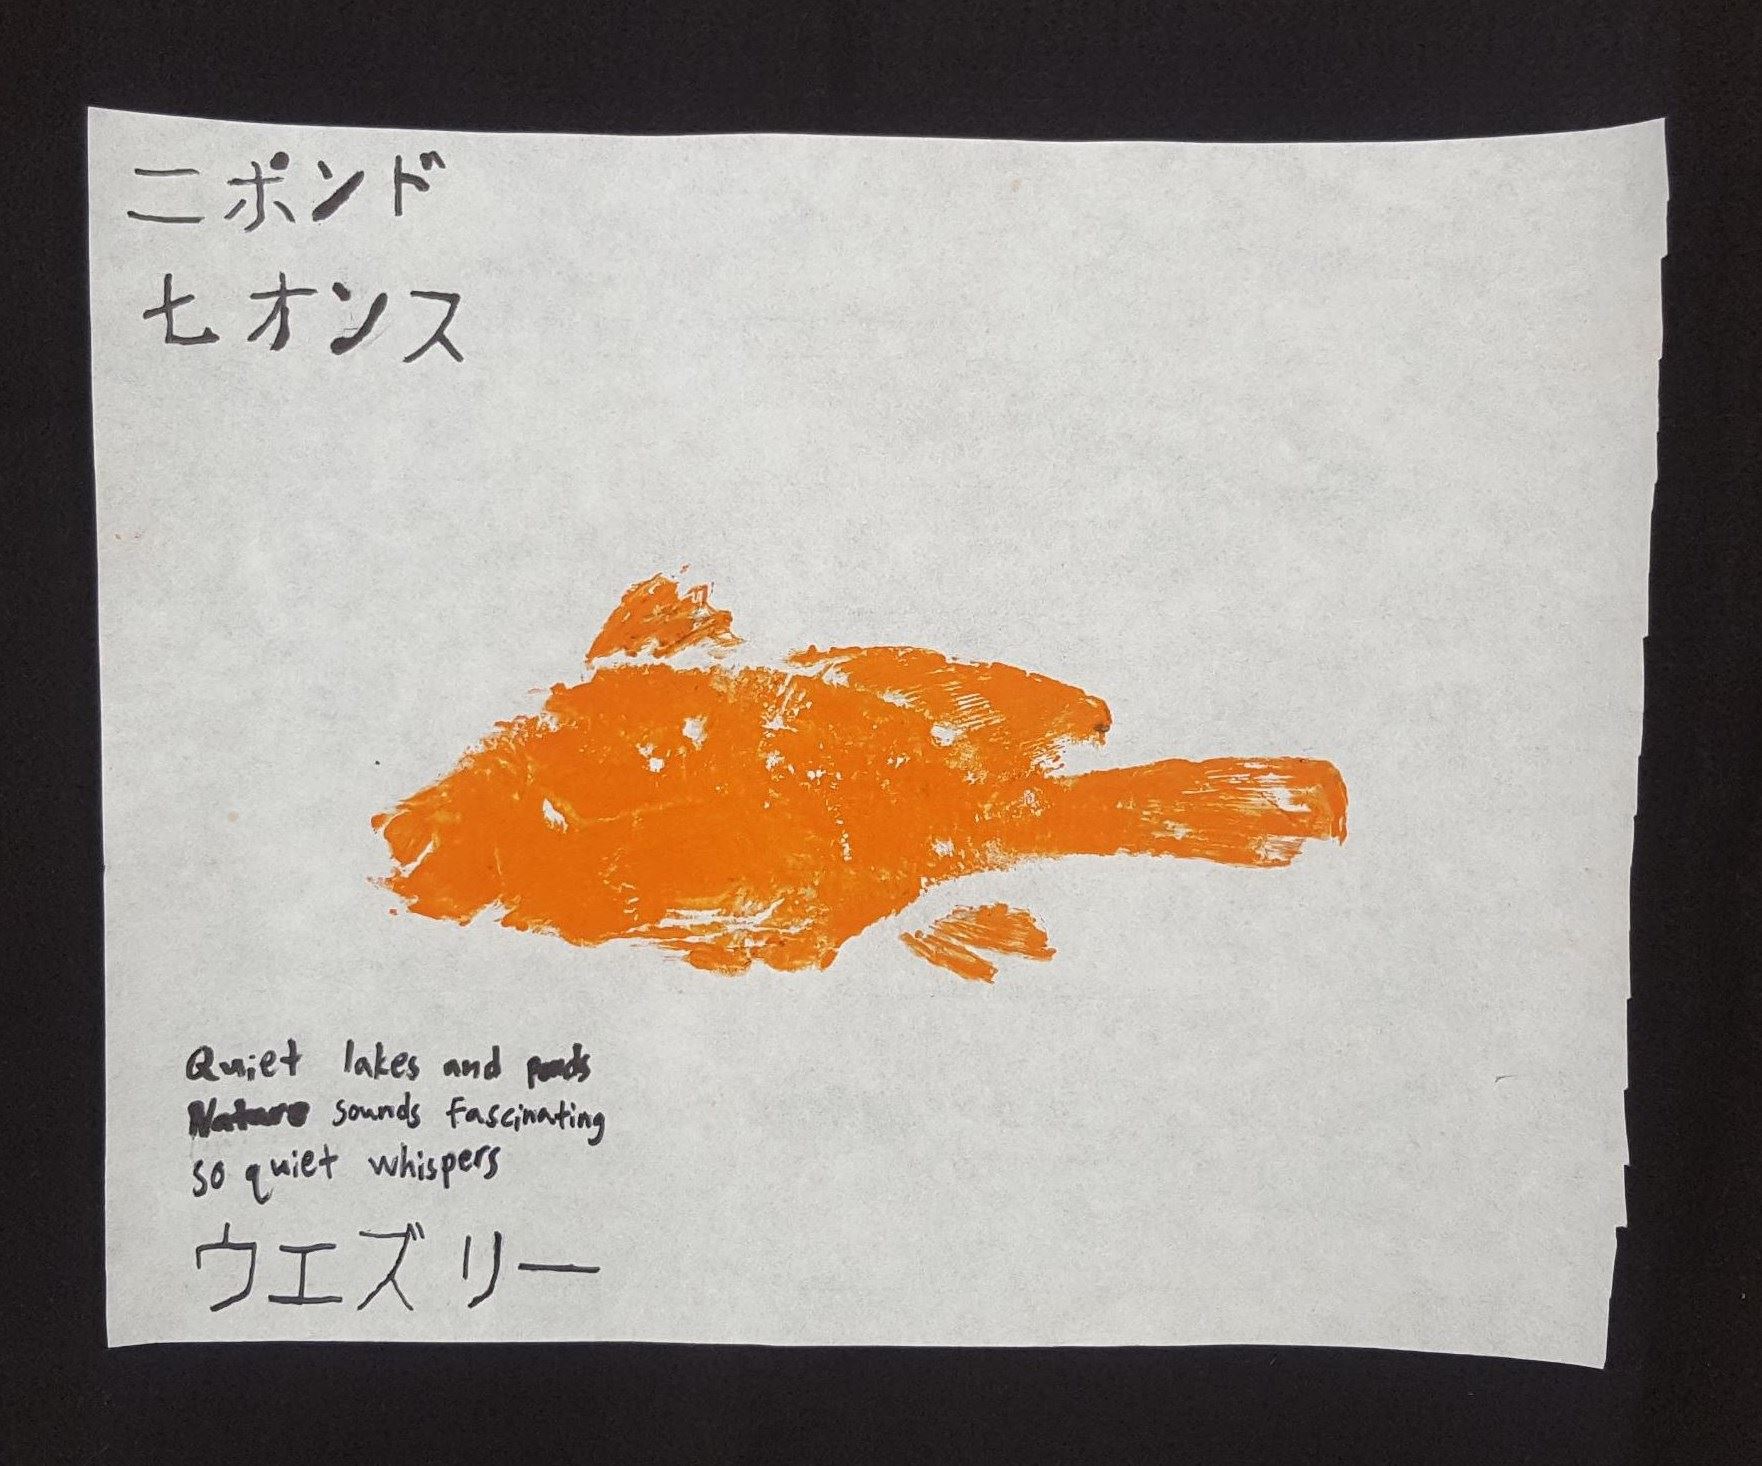 二ポンド
七オンス
Quiet lakes and ponds
Nature sounds fascinating
so quiet whispers
ウエズリー